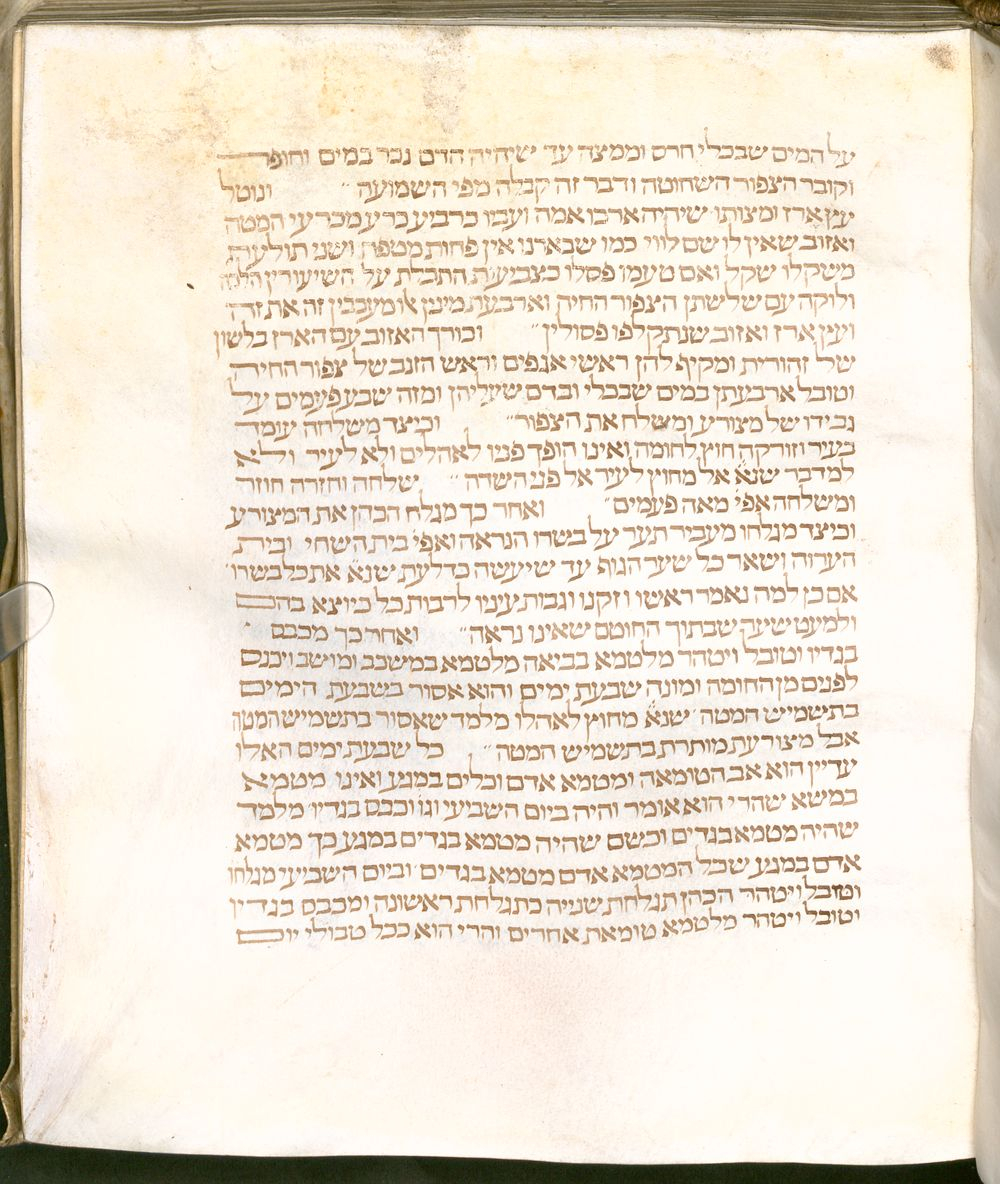 על המים שבכלי חרס וממצה עד שיהיה הדם נכר במים וחופר
וקובר הצפור השחוטה ודבר זה קבלה מפי השמועה ״ ונוטל
עץ ארז ומצותו שיהיה ארכו אמה ועביו כרביע כרע מכרעי המטה
ואזוב שאין לו שם לווי כמו שבארנו אין פחות מטפח ושני תולעת
משקלו שקל ואם טעמו פסלו כצביעת התכלת על השיעורין הלכה
ולוקח עם שלשתן הצפור החיה וארבעת מינין אלו מעכבין זה את זה
ועץ ארז ואזוב שנתקלפו פסולין ״ וכורך האזוב עם הארז בלשון
של זהורית ומקיף להן ראשי אגפים וראש הזנב של צפור החיה
וטובל ארבעתן במים שבכלי ובדם שעליהן ומזה שבע פעמים על
גב ידו של מצורע ומשלח את הצפור ״ וכיצד משלחה עומד
בעיר וזורקה חוץ לחומה ואינו הופך פניו לא לים ולא לעיר ולא
למדבר שנא אל מחוץ לעיר אל פני השדה ״ שלחה וחזרה חוזר
ומשלחה אפי מאה פעמים ״ ואחר כך מגלח הכהן את המצורע
וכיצד מגלחו מעביר תער על בשרו הנראה ואפי בית השחי ובית
הערוה ושאר כל שער הגוף עד שיעשה כדלעת שנא את כל בשרו
אם כן למה נאמר ראשו וזקנו וגבות עיניו לרבות כל כיוצא בהם
ולמעט שיער שבתוך החוטם שאינו נראה ״ ואחר כך מכבס
בגדיו וטובל ויטהר מלטמא בביאה מלטמא במשכב ומושב ויכנס
לפנים מן החומה ומונה שבעת ימים והוא אסור בשבעת הימים
בתשמיש המטה שנא מחוץ לאהלו מלמד שאסור בתשמיש המטה
אבל מצורעת מותרת בתשמיש המטה ״ כל שבעת ימים האלו
עדיין הוא אב הטומאה ומטמא אדם וכלים במגע ואינו מטמא
במשא שהרי הוא אומר והיה ביום השביעי וגו וכבס בגדיו מלמד
שהיה מטמא בגדים וכשם שהיה מטמא בגדים במגע כך מטמא
אדם במגע שכל המטמא אדם מטמא בגדים וביום השביעי מגלחו
הכהן תגלחת שנייה כתגלחת ראשונה ומכבס בגדיו
וטובל ויטהר מלטמא טומאת אחרים והרי הוא ככל טבולי יום